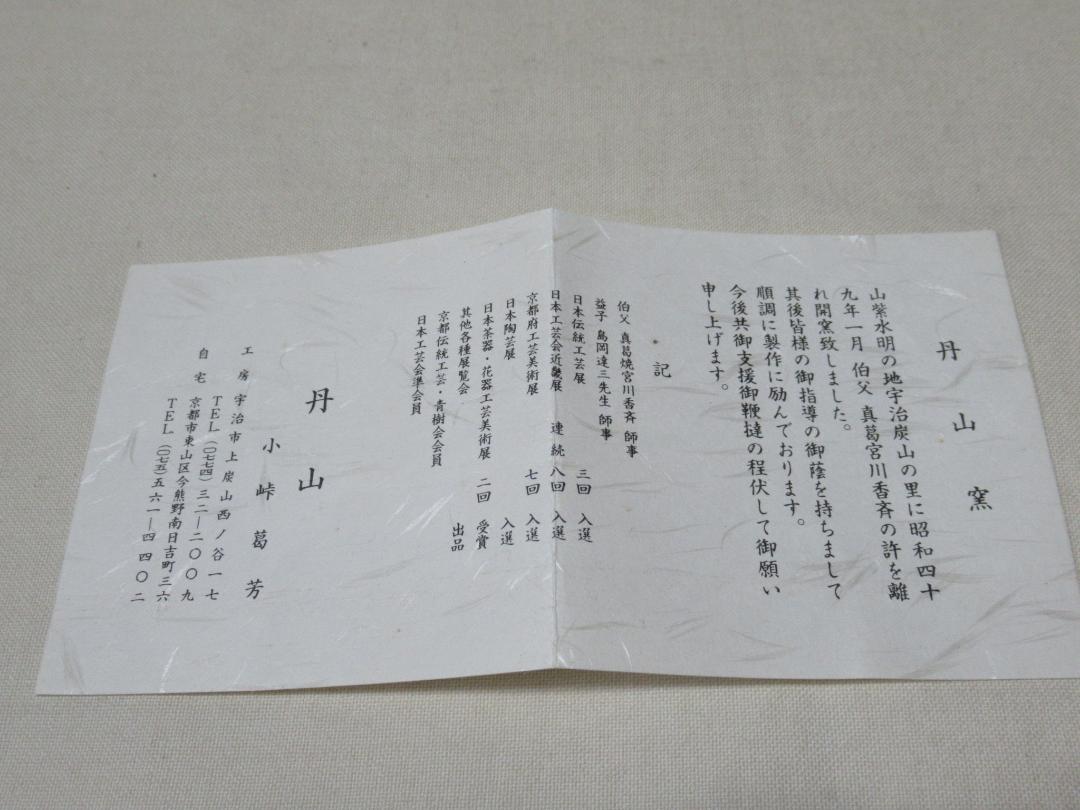 丹山窯
山紫水明の地宇治炭山の里に昭和四十
九年一月 伯父 真葛宮川香斉の許を離
れ開窯致しました。
其後皆様の御指導の御蔭を持ちまして
順調に製作に励んでおります。
今後共御支援御鞭撻の程伏して御願い
申し上げます。
記
伯父 真葛焼宮川香斉 師事
益子 島岡達三先生 師事
日本伝統工芸展 三回 入選
日本工芸会近畿展 連続八回 入選
京都府工芸美術展 七回 入選
日本陶芸展 入選
日本茶器・花器工芸美術展 二回 受賞
其他各種展覧会 出品
京都伝統工芸・青樹会会員
日本工芸会準会員
丹山
小峠葛芳
工房 宇治市上炭山西ノ谷一七
TEL(〇七七四)三二―二〇〇九
自宅 京都市東山区今熊野南日吉町三六
TEL(〇七五)五六一―四四〇二